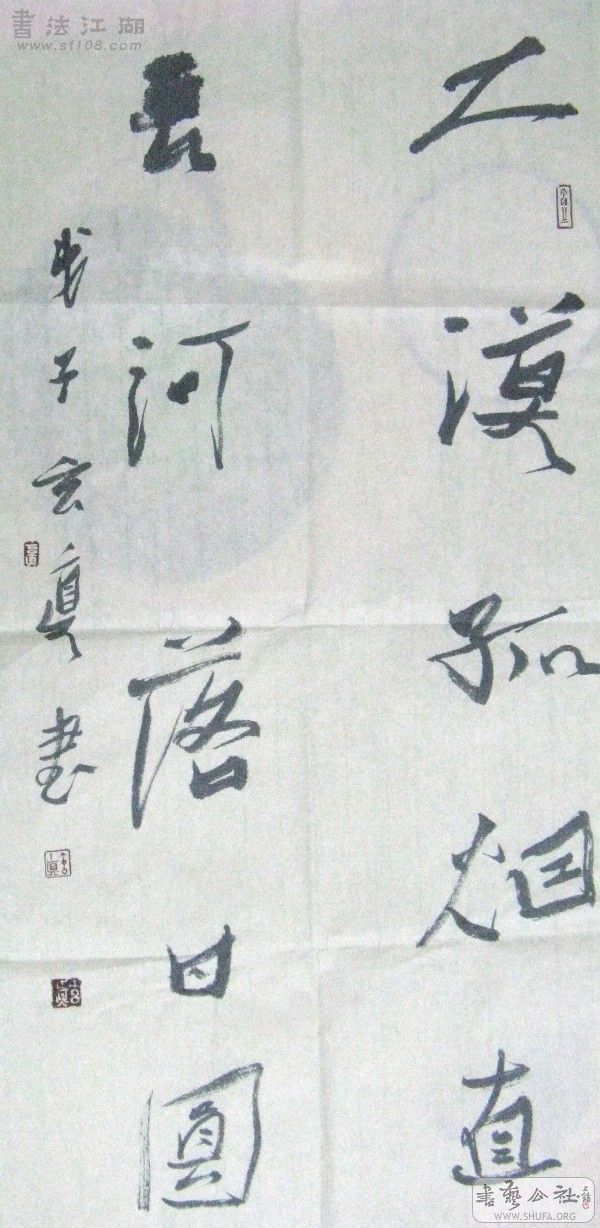 大漠孤烟直
長河落日圓
戊子玄真書
書法江湖
www.sf108.com
書藝公社
WWW.SHUFA.ORG